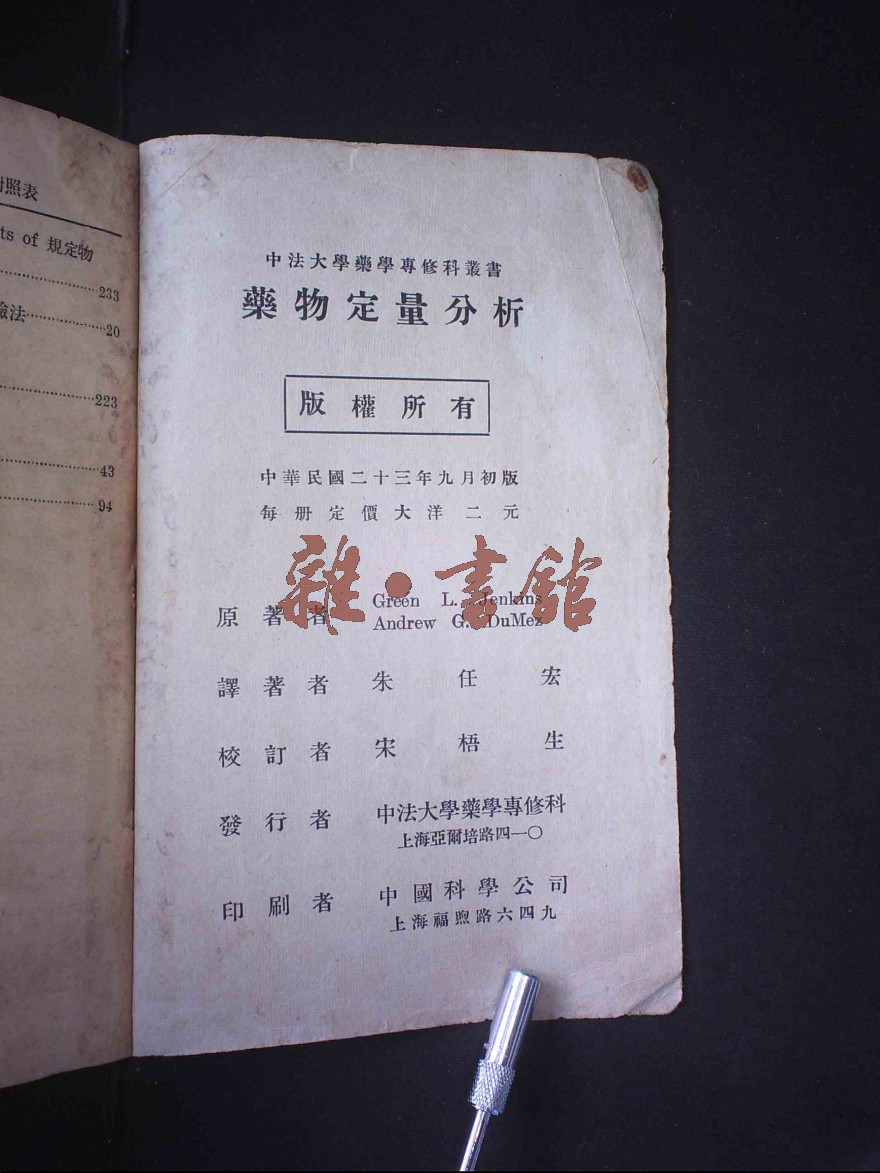 對照表
ts of 規定物
233
法 20
223
43
94
中法大學藥學專修科叢書
藥物定量分析
版權所有
中華民國二十三年九月初版
每册定價大洋二元
雜·書館
原著者 Green L. Jenkins
Andrew G. DuMez
譯著者 朱任宏
校訂者 宋梧生
發行者 中法大學藥學專修科
上海亞爾培路四一〇
印刷者 中國科學公司
上海福煦路六四九